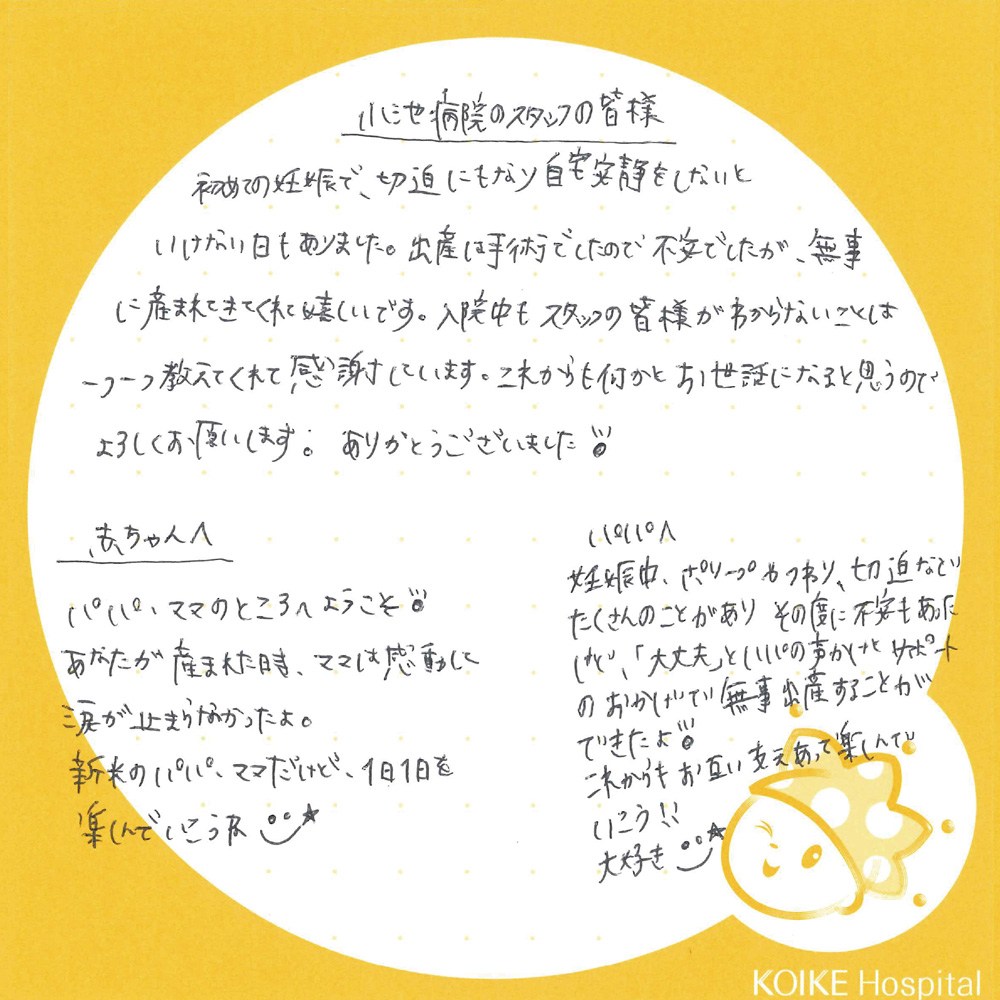 小池病院のスタッフの皆様
初めての妊娠で、切迫にもなり自宅安静をしないと
いけない日もありました。出産は手術でしたので不安でしたが、無事
に産まれてきてくれて嬉しいです。入院中もスタッフの皆様がわからないことは
一つ一つ教えてくれて感謝しています。これからも何かとお世話になると思うので
よろしくお願いします。ありがとうございました!!
赤ちゃんへ
パパ、ママのところへようこそ!!
あなたが産まれた時、ママは感動して
涙が止まらなかったよ。
新米のパパ、ママだけど、1日1日を
楽しんでいこうね
パパへ
妊娠中、ポリープやつわり、切迫など
たくさんのことがありその度に不安もあった
けど、「大丈夫」とパパの声かけとサポート
のおかげで無事出産することが
できたよ!!
これからもお互い支えあって楽しんで
いこう!!
大好き
KOIKE Hospital